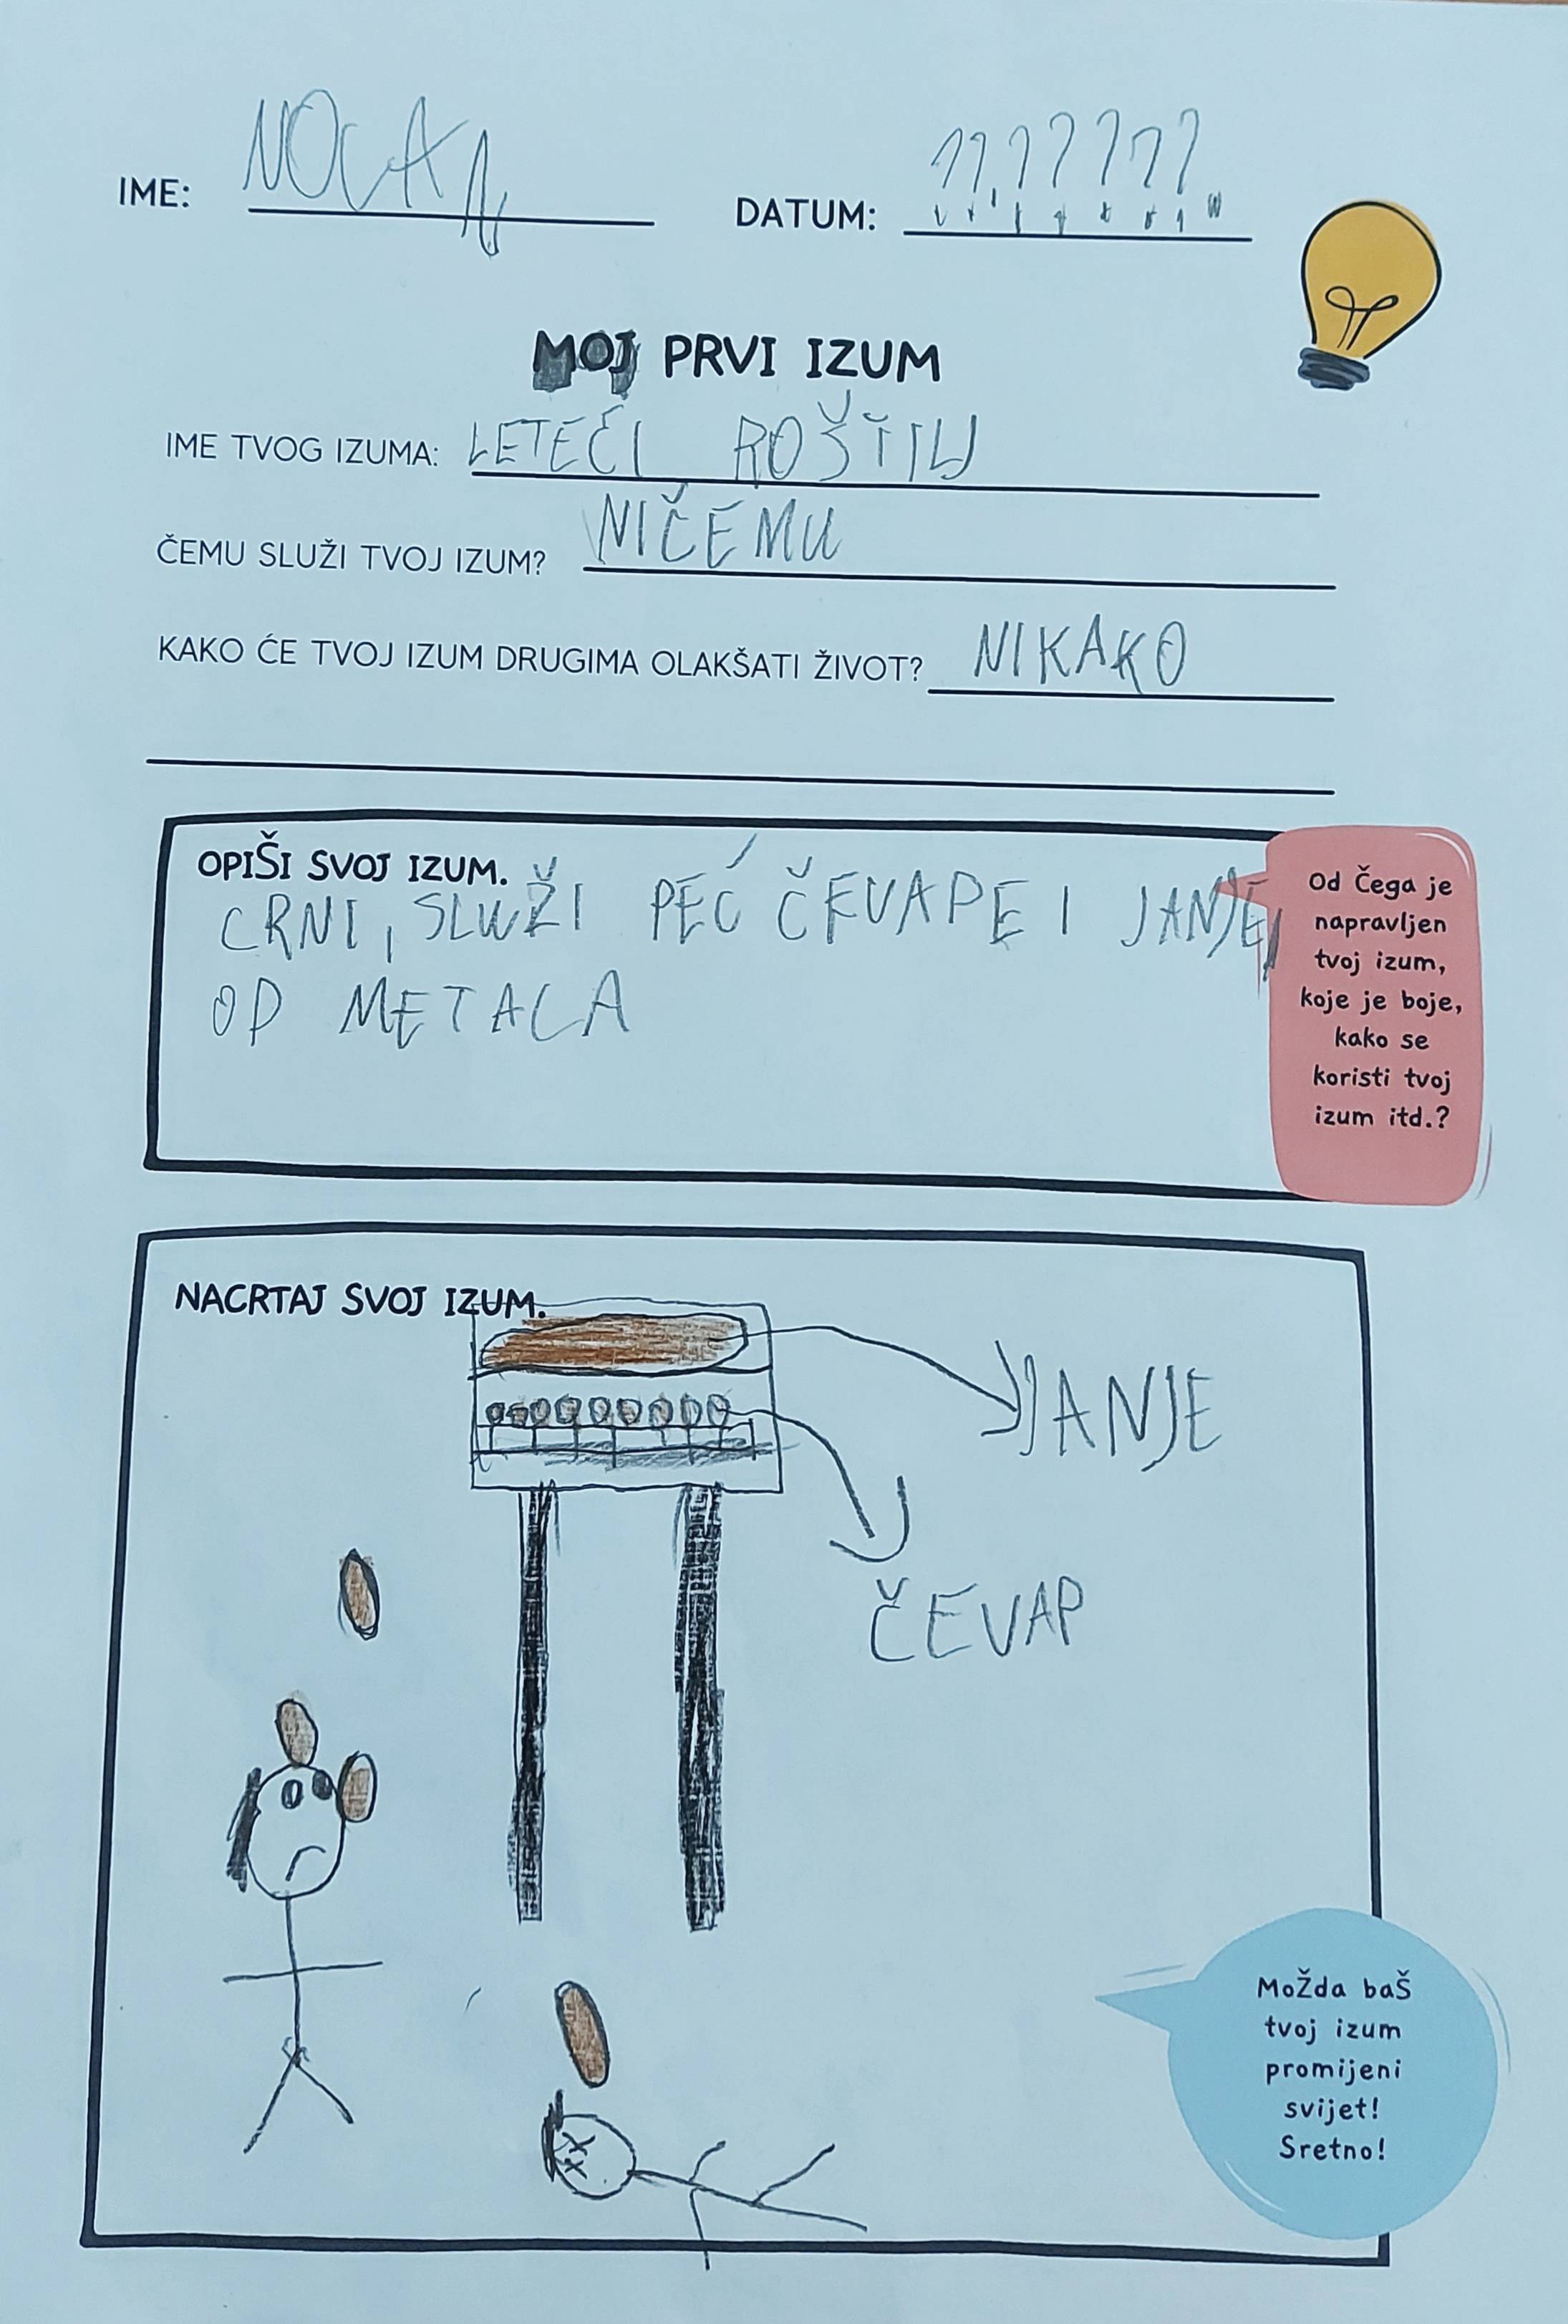 IME: NOLAN
DATUM: ??.??????.
MOJ PRVI IZUM
IME TVOG IZUMA: LETEĆI ROŠTILJ
ČEMU SLUŽI TVOJ IZUM? NIČEMU
KAKO ĆE TVOJ IZUM DRUGIMA OLAKŠATI ŽIVOT? NIKAKO
OPIŠI SVOJ IZUM.
CRNI, SLUŽI PEĆ ČEVAPE I JANJE,
OD METALA
Od Čega je
napravljen
tvoj izum,
koje je boje,
kako se
koristi tvoj
izum itd.?
NACRTAJ SVOJ IZUM.
JANJE
ČEVAP
MoŽda baŠ
tvoj izum
promijeni
svijet!
Sretno!